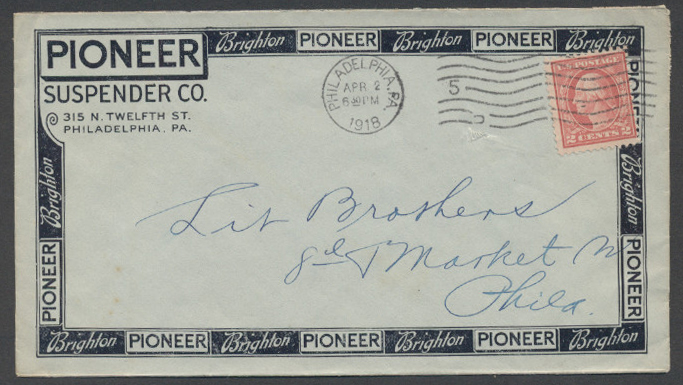 PIONEER
SUSPENDER CO.
315 N. TWELFTH ST.
PHILADELPHIA. PA.
Brighton PIONEER Brighton PIONEER Brighton
PIONEER
Brighton
PIONEER
Brighton
PIONEER
Brighton PIONEER Brighton PIONEER Brighton PIONEER Brighton
PHILADELPHIA, PA.
APR 2
6 PM
1918
5
U.S. POSTAGE
2 CENTS 2
Lit Brothers
8th & Market
Phila.